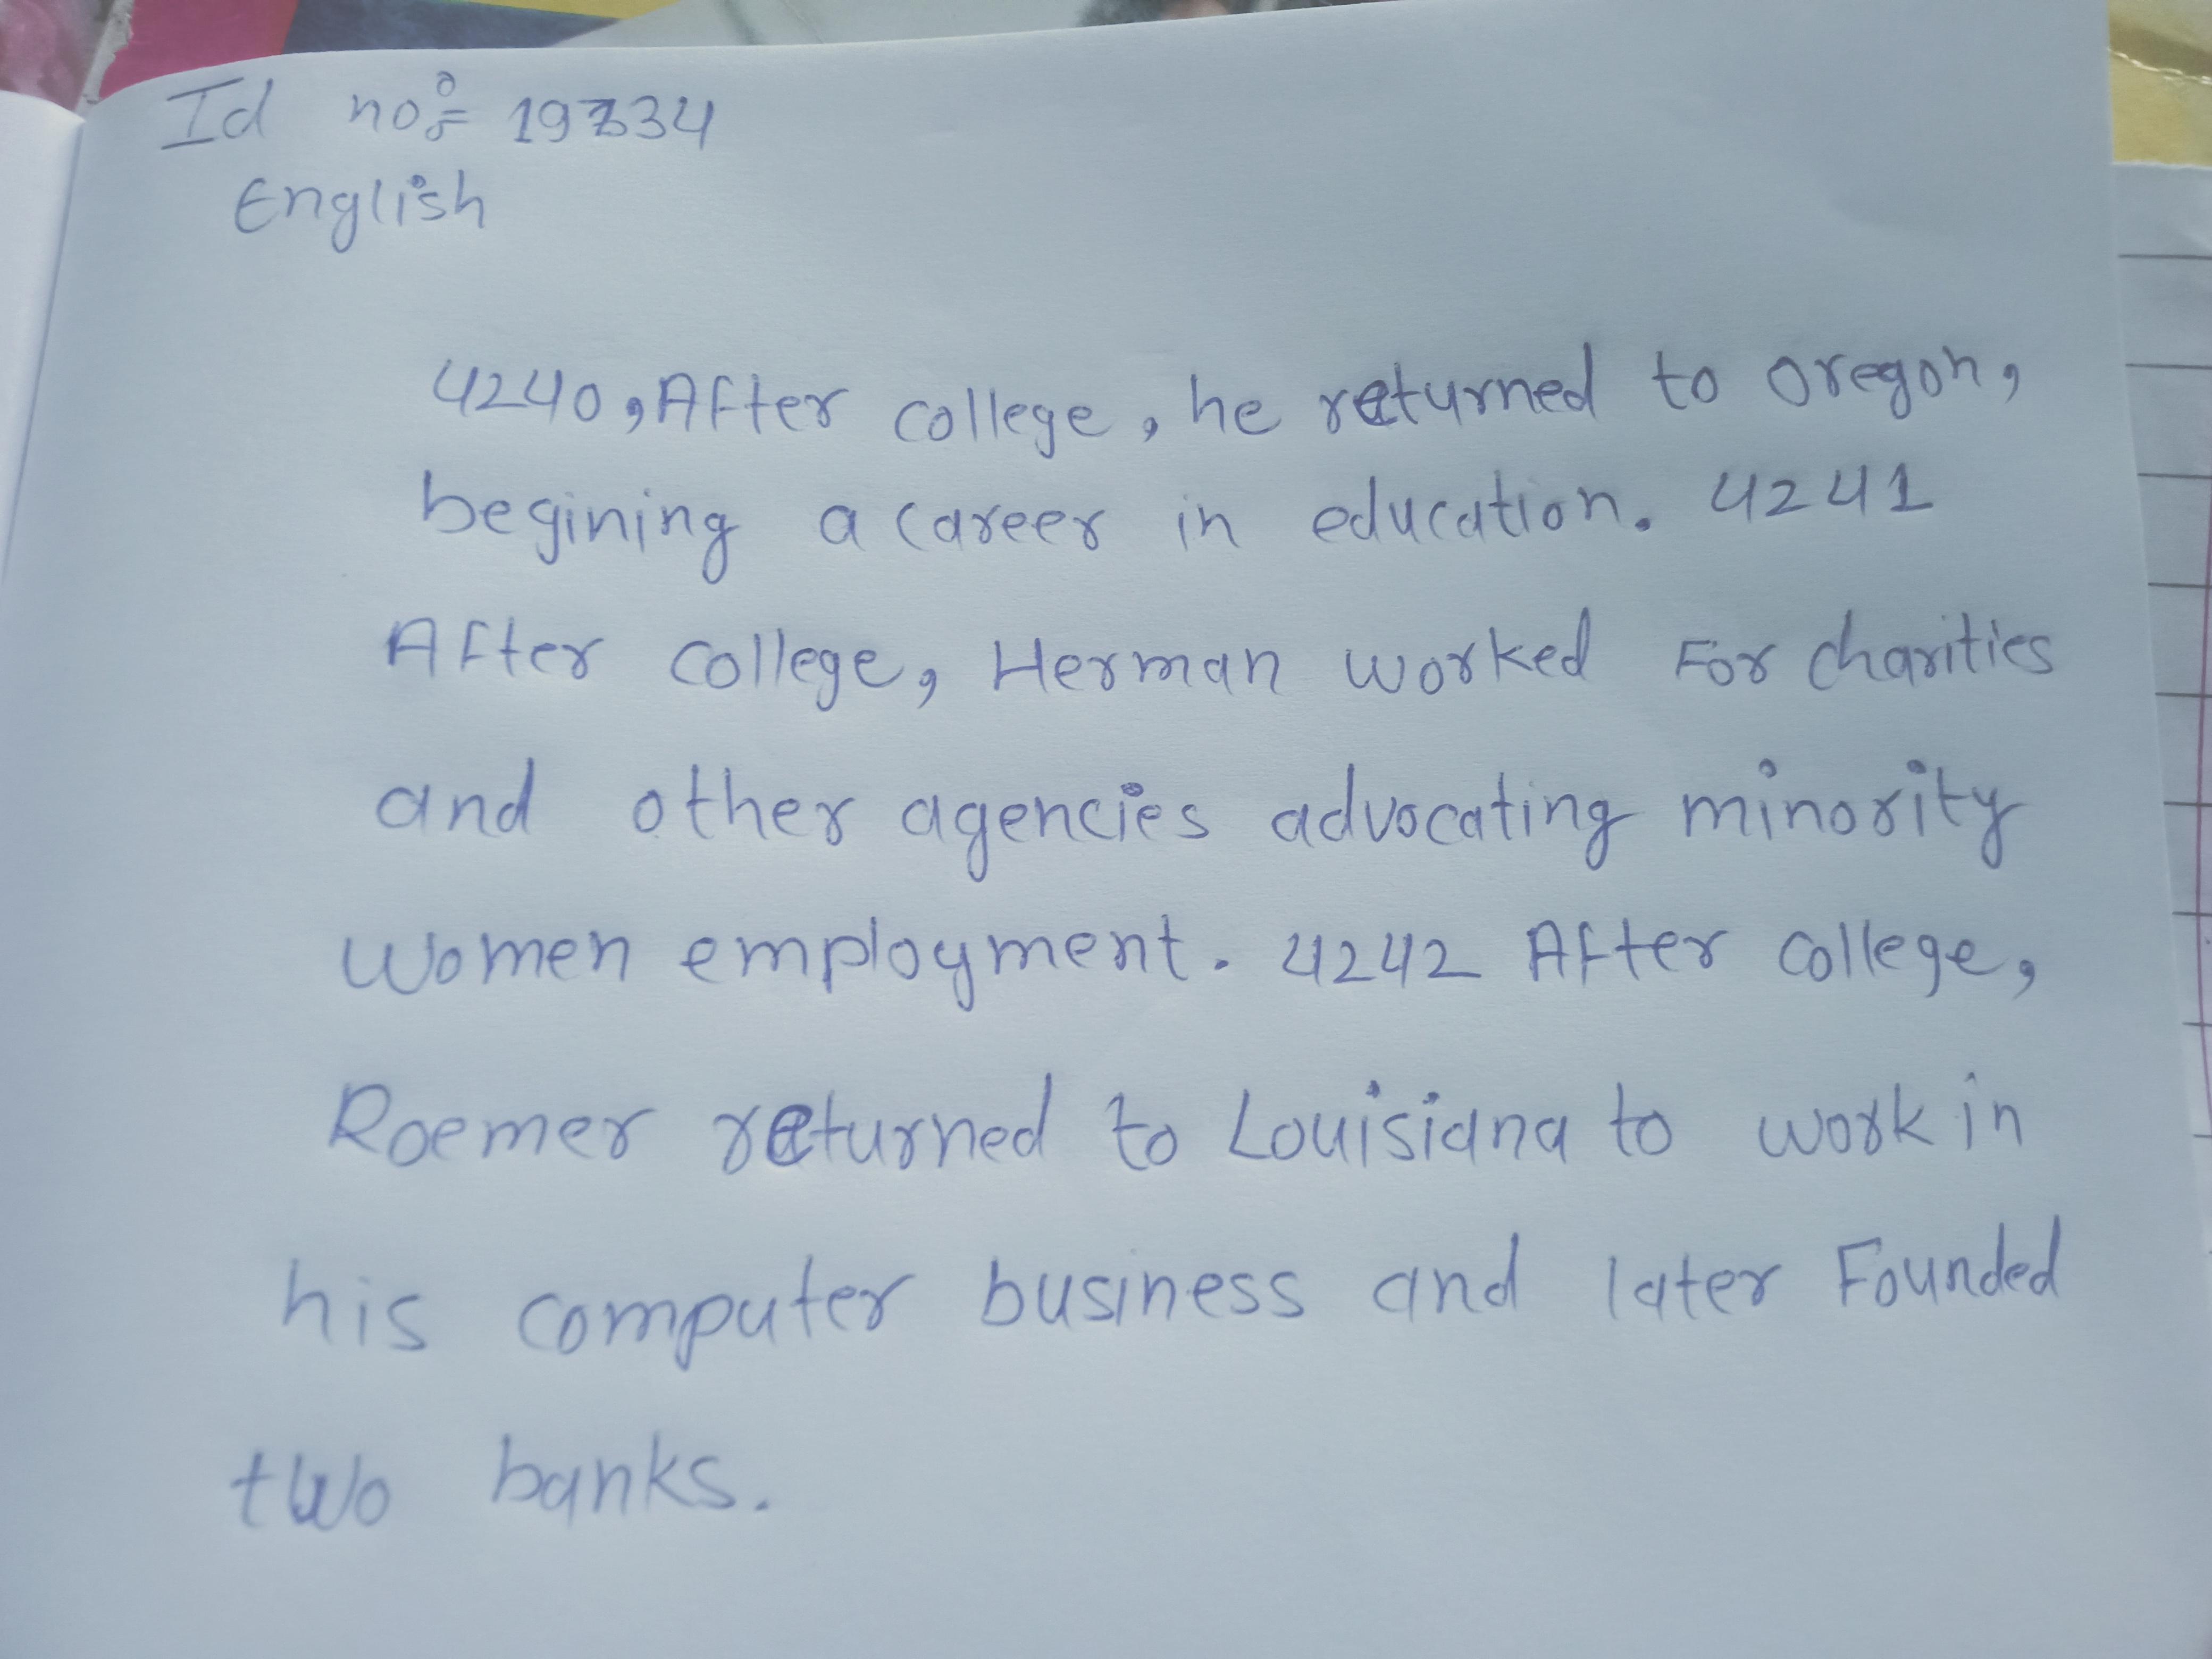 Id no:- 19334
English
4240, After college, he returned to oregon,
begining a career in education. 4241
After college, Herman worked For charities
and other agencies advocating minority
women employment. 4242 After college,
Roemer returned to Louisiana to work in
his computer business and later Founded
two banks.